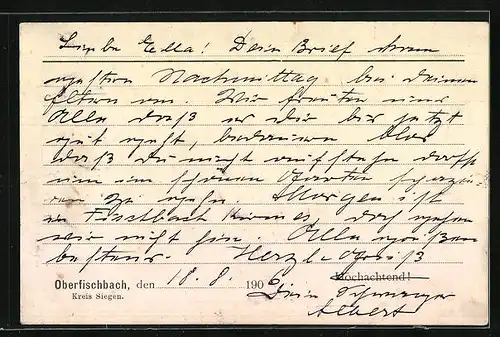 Liebe Ella! Dein Brief kam
gestern Nachmittag bei deinen
Eltern an. Wir freuten uns
Alle daß es dir bis jetzt
gut geht, bedauern blos
daß Du nicht aufstehn darfst
um im schönen Garten spazie-
ren zu gehn. Morgen ist
in Fischbach Kirmes, doch gehen
wir nicht hin. Alle grüßen
bestens. Herzl. Gruß
Oberfischbach, den 18. 8. 1906 Hochachtend!
Kreis Siegen. Dein Schwager
Albert